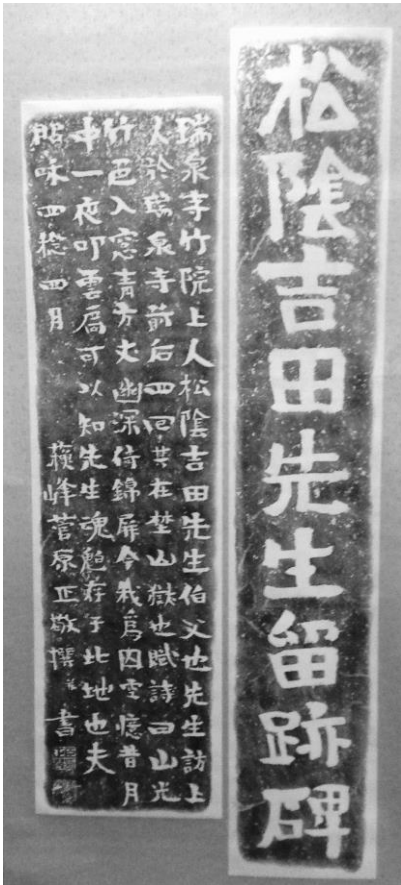 松陰吉田先生留跡碑
瑞泉寺竹院上人松陰吉田先生伯父也先生訪上
人於瑞泉寺前后四回其在埜山獄也賦詩曰山光
竹色入窓青方丈幽深倚錦屏今我爲囚空憶昔月
中一夜叩雲扃可以知先生魂魄存于此地也夫
昭咊四稔四月 蘇峰菅原正敬撰并書